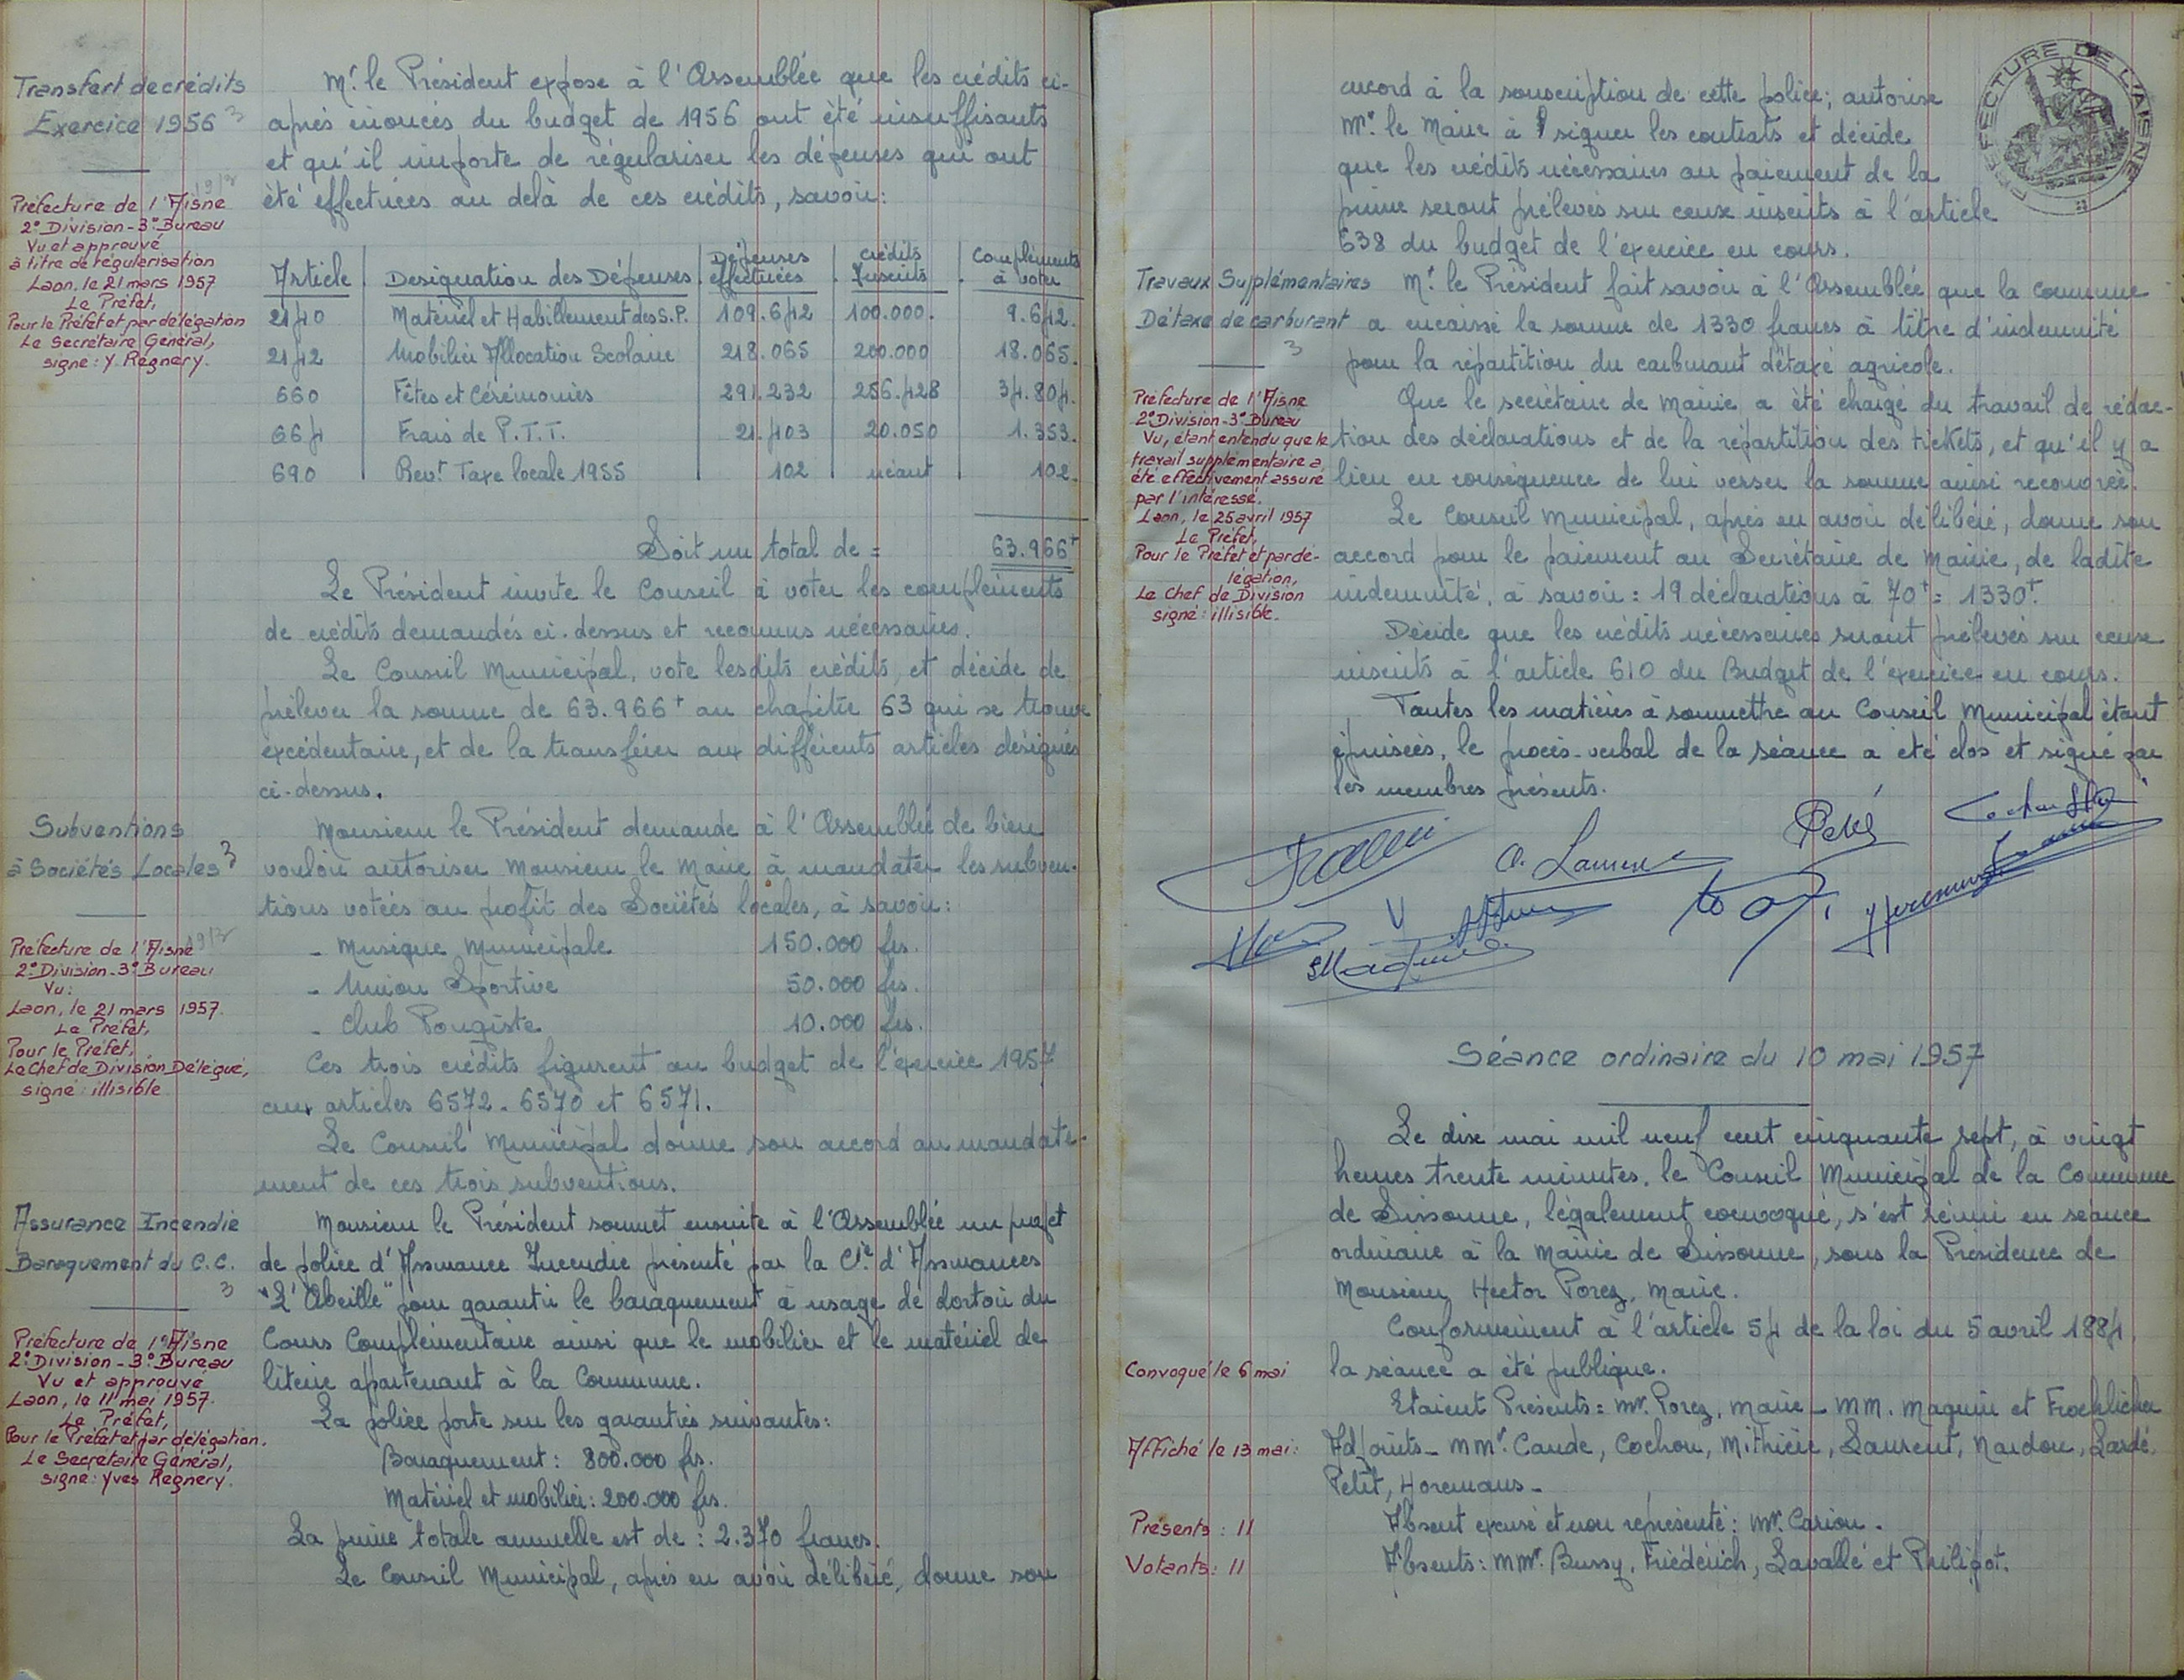 Transfert de crédits
Exercice 1956
3
Préfecture de l'Aisne
2° Division - 3° Bureau
Vu et approuvé
à titre de régularisation
Laon, le 21 mars 1957
Le Préfet,
Pour le Préfet et par délégation
Le Secrétaire Général,
signé : Y. Régnery.
Mr le Président expose à l'Assemblée que les crédits ci-
après énoncés du budget de 1956 ont été insuffisants
et qu'il importe de régulariser les dépenses qui ont
été effectuées au delà de ces crédits, savoir :
Article Designation des Dépenses Dépenses effectuées crédits Inscrits Compléments à voter
2140 Matériel et Habillement des S.P. 109.642 100.000. 9.642.
2142 Mobilier Allocation Scolaire 218.065 200.000 18.065.
660 Fêtes et Cérémonies 291.232 256.428 34.804.
664 Frais de P.T.T. 21.403 20.050 1.353.
690 Revt Taxe locale 1955 102 néant 102.
Soit un total de = 63.966 f
Le Président invite le Conseil à voter les compléments
de crédits demandés ci-dessus et reconnus nécessaires.
Le Conseil Municipal, vote lesdits crédits, et décide de
prélever la somme de 63.966 f au chapitre 63 qui se trouve
excédentaire, et de la transférer aux différents articles désignés
ci-dessus.
Subventions
à Sociétés Locales
3
Préfecture de l'Aisne
2° Division - 3° Bureau
Vu :
Laon, le 21 mars 1957.
Le Préfet,
Pour le Préfet,
Le Chef de Division Délégué,
signé : illisible
Monsieur le Président demande à l'Assemblée de bien
vouloir autoriser Monsieur le Maire à mandater les subven-
tions votées au profit des Sociétés locales, à savoir :
- Musique Municipale 150.000 frs.
- Union Sportive 50.000 frs.
- Club Pongiste 10.000 frs.
Ces trois crédits figurent au budget de l'exercice 1957
aux articles 6572 - 6570 et 6571.
Le Conseil Municipal donne son accord au mandate-
ment de ces trois subventions.
Assurance Incendie
Baraquement du C.C.
3
Préfecture de l'Aisne
2° Division - 3° Bureau
Vu et approuvé
Laon, le 11 mai 1957.
Le Préfet,
Pour le Préfet et par délégation.
Le Secrétaire Général,
signé : Yves Régnery.
Monsieur le Président soumet ensuite à l'Assemblée un projet
de police d'Assurance Incendie présenté par la Cie d'Assurances
"L'Abeille" pour garantir le baraquement à usage de dortoir du
Cours Complémentaire ainsi que le mobilier et le matériel de
literie apartenant à la Commune.
La police porte sur les garanties suivantes :
Baraquement : 800.000 frs.
Matériel et mobilier : 200.000 frs.
La prime totale annuelle est de : 2.370 francs.
Le Conseil Municipal, après en avoir délibéré, donne son
accord à la souscription de cette police ; autorise
Mr le Maire à signer les contrats et décide
que les crédits nécessaires au paiement de la
prime seront prélevés sur ceux inscrits à l'article
638 du budget de l'exercice en cours.
PREFECTURE DE L'AISNE
Travaux Supplémentaires
Détaxe de carburant
3
Préfecture de l'Aisne
2° Division - 3° Bureau
Vu, étant entendu que le
travail supplémentaire a
été effectivement assuré
par l'intéressé.
Laon, le 25 avril 1957
Le Préfet,
Pour le Préfet et par dé-
légation,
Le Chef de Division
signé : illisible.
Mr le Président fait savoir à l'Assemblée que la commune
a encaissé la somme de 1330 francs à titre d'indemnité
pour la répartition du carburant détaxé agricole.
Que le secrétaire de Mairie a été chargé du travail de rédac-
tion des déclarations et de la répartition des tickets, et qu'il y a
lieu en conséquence de lui verser la somme ainsi recouvrée.
Le Conseil Municipal, après en avoir délibéré, donne son
accord pour le paiement au Secrétaire de Mairie, de ladite
indemnité, à savoir : 19 déclarations à 70 f = 1330 f.
Décide que les crédits nécessaires seront prélevés sur ceux
inscrits à l'article 610 du Budget de l'exercice en cours.
Toutes les matières à soumettre au Conseil Municipal étant
épuisées, le procès-verbal de la séance a été clos et signé par
les membres présents.
Séance ordinaire du 10 mai 1957
Le dix mai mil neuf cent cinquante sept, à vingt
heures trente minutes, le Conseil Municipal de la Commune
de Sissonne, légalement convoqué, s'est réuni en séance
ordinaire à la Mairie de Sissonne, sous la Présidence de
Monsieur Hector Porez, Maire.
Conformément à l'article 54 de la loi du 5 avril 1884,
la séance a été publique.
Convoqué le 6 mai
Etaient Présents = Mr. Porez, Maire - MM. Maquin et Froehlicher
Affiché le 13 mai :
Adjoints - MMr. Caude, Cochon, Mithière, Laurent, Nardon, Lardé,
Petit, Horemans -
Présents : 11
Absent excusé et non représenté : Mr. Cariou.
Votants : 11
Absents : MMr. Bussy, Friédérich, Lavallé et Philipot.